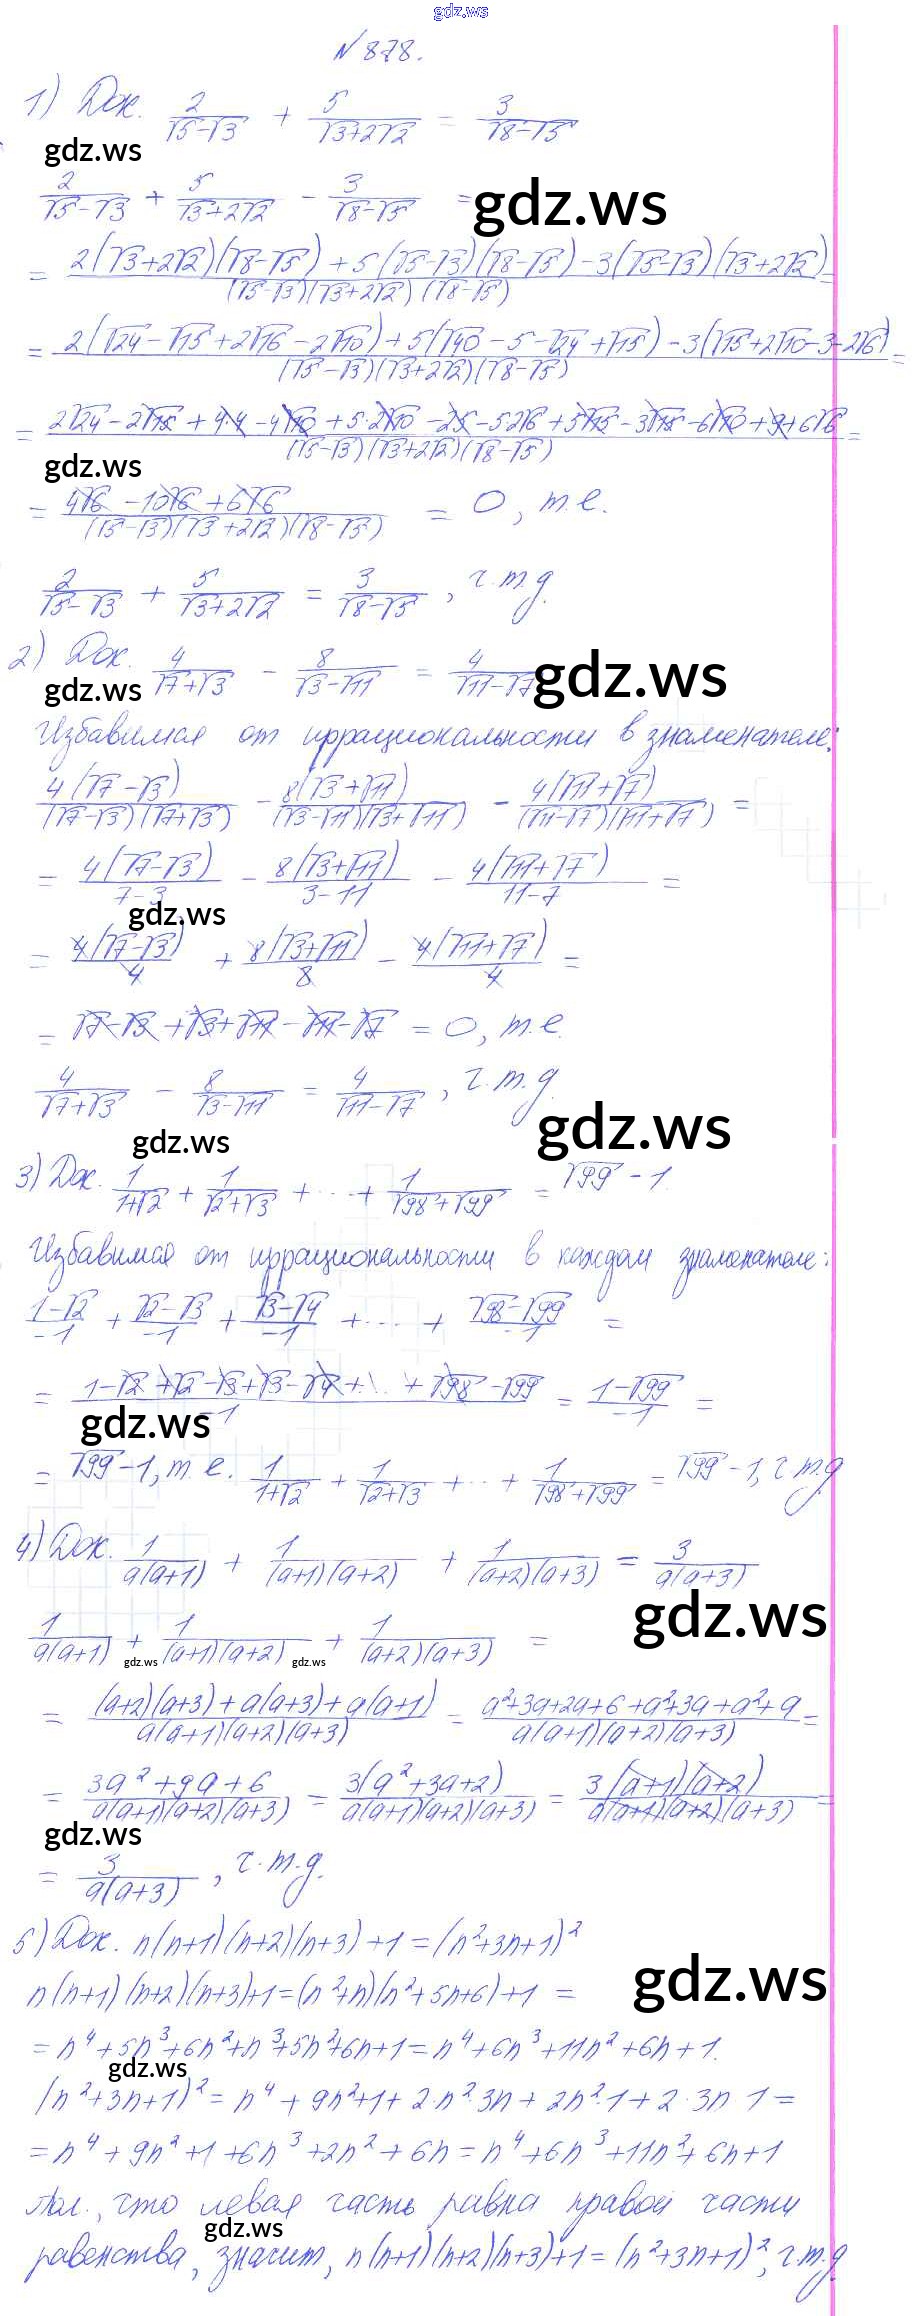 gdz.ws
№ 878.
1) Док. 2/(√5-√3) + 5/(√3+2√2) = 3/(√8-√5)
gdz.ws
2/(√5-√3) + 5/(√3+2√2) - 3/(√8-√5) =
gdz.ws
= (2(√3+2√2)(√8-√5) + 5(√5-√3)(√8-√5) - 3(√5-√3)(√3+2√2))/((√5-√3)(√3+2√2)(√8-√5)) =
= (2(√24-√15+2√16-2√10)+5(√40-5-√24+√15)-3(√15+2√10-3-2√6))/((√5-√3)(√3+2√2)(√8-√5)) =
= (2√24-2√15+4·4-4√10+5·2√10-25-5·2√6+5√15-3√15-6√10+9+6√6)/((√5-√3)(√3+2√2)(√8-√5)) =
gdz.ws
= (4√6-10√6+6√6)/((√5-√3)(√3+2√2)(√8-√5)) = 0, т.е.
2/(√5-√3) + 5/(√3+2√2) = 3/(√8-√5), ч.т.д.
2) Док. 4/(√7+√3) - 8/(√3-√11) = 4/(√11-√7)
gdz.ws
gdz.ws
Избавимся от иррациональности в знаменателе:
4(√7-√3)/((√7-√3)(√7+√3)) - 8(√3+√11)/((√3-√11)(√3+√11)) - 4(√11+√7)/((√11-√7)(√11+√7)) =
= 4(√7-√3)/(7-3) - 8(√3+√11)/(3-11) - 4(√11+√7)/(11-7) =
gdz.ws
= 4(√7-√3)/4 + 8(√3+√11)/8 - 4(√11+√7)/4 =
= √7-√3+√3+√11-√11-√7 = 0, т.е.
4/(√7+√3) - 8/(√3-√11) = 4/(√11-√7), ч.т.д.
gdz.ws
gdz.ws
3) Док. 1/(1+√2) + 1/(√2+√3) + ... + 1/(√98+√99) = √99 - 1
Избавимся от иррациональности в каждом знаменателе:
(1-√2)/-1 + (√2-√3)/-1 + (√3-√4)/-1 + ... + (√98-√99)/-1 =
= (1-√2+√2-√3+√3-√4+...+√98-√99)/-1 = (1-√99)/-1 =
gdz.ws
= √99-1, т.е. 1/(1+√2) + 1/(√2+√3) + ... + 1/(√98+√99) = √99-1, ч.т.д
4) Док. 1/(a(a+1)) + 1/((a+1)(a+2)) + 1/((a+2)(a+3)) = 3/(a(a+3))
gdz.ws
1/(a(a+1)) + 1/((a+1)(a+2)) + 1/((a+2)(a+3)) =
gdz.ws gdz.ws
= ((a+2)(a+3)+a(a+3)+a(a+1))/(a(a+1)(a+2)(a+3)) = (a²+3a+2a+6+a²+3a+a²+a)/(a(a+1)(a+2)(a+3)) =
= (3a²+9a+6)/(a(a+1)(a+2)(a+3)) = 3(a²+3a+2)/(a(a+1)(a+2)(a+3)) = 3(a+1)(a+2)/(a(a+1)(a+2)(a+3)) =
gdz.ws
= 3/(a(a+3)), ч.т.д.
5) Док. n(n+1)(n+2)(n+3)+1=(n²+3n+1)²
gdz.ws
n(n+1)(n+2)(n+3)+1=(n²+n)(n²+5n+6)+1 =
= n⁴+5n³+6n²+n³+5n²+6n+1=n⁴+6n³+11n²+6n+1.
gdz.ws
(n²+3n+1)² = n⁴+9n²+1+2·n²·3n+2n²·1+2·3n·1 =
= n⁴+9n²+1+6n³+2n²+6n = n⁴+6n³+11n²+6n+1
Пол., что левая часть равна правой части
gdz.ws
равенства, значит, n(n+1)(n+2)(n+3)+1=(n²+3n+1)², ч.т.д